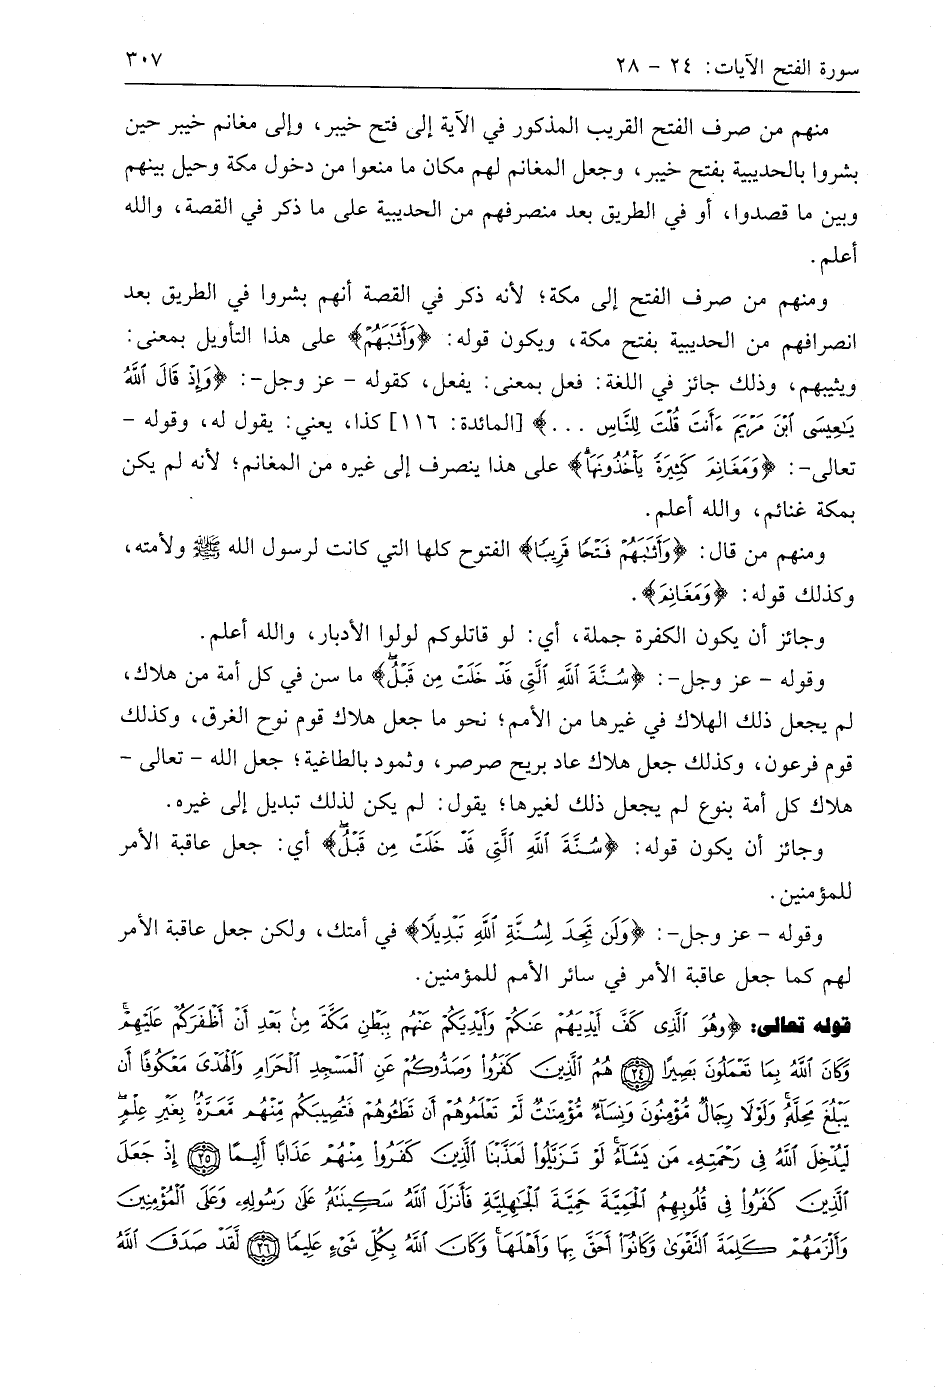 سورة الفتح الآيات: ٢٤ - ٢٨
٣٠٧
منهم من صرف الفتح القريب المذكور في الآية إلى فتح خيبر، وإلى مغانم خيبر حين
بشروا بالحديبية بفتح خيبر، وجعل المغانم لهم مكان ما منعوا من دخول مكة وحيل بينهم
وبين ما قصدوا، أو في الطريق بعد منصرفهم من الحديبية على ما ذكر في القصة، والله
أعلم.
ومنهم من صرف الفتح إلى مكة؛ لأنه ذكر في القصة أنهم بشروا في الطريق بعد
انصرافهم من الحديبية بفتح مكة، ويكون قوله: ﴿وَأَثَـٰبَهُمْ﴾ على هذا التأويل بمعنى:
ويثيبهم، وذلك جائز في اللغة: فعل بمعنى: يفعل، كقوله - عز وجل-: ﴿وَإِذْ قَالَ ٱللَّهُ
يَـٰعِيسَى ٱبْنَ مَرْيَمَ ءَأَنتَ قُلْتَ لِلنَّاسِ ...﴾ [المائدة: ١١٦] كذا، يعني: يقول له، وقوله -
تعالى-: ﴿وَمَغَانِمَ كَثِيرَةً يَأْخُذُونَهَا﴾ على هذا ينصرف إلى غيره من المغانم؛ لأنه لم يكن
بمكة غنائم، والله أعلم.
ومنهم من قال: ﴿وَأَثَـٰبَهُمْ فَتْحًا قَرِيبًا﴾ الفتوح كلها التي كانت لرسول الله ﷺ ولأمته،
وكذلك قوله: ﴿وَمَغَانِمَ﴾.
وجائز أن يكون الكفرة جملة، أي: لو قاتلوكم لولوا الأدبار، والله أعلم.
وقوله - عز وجل-: ﴿سُنَّةَ ٱللَّهِ ٱلَّتِى قَدْ خَلَتْ مِن قَبْلُ﴾ ما سن في كل أمة من هلاك،
لم يجعل ذلك الهلاك في غيرها من الأمم؛ نحو ما جعل هلاك قوم نوح الغرق، وكذلك
قوم فرعون، وكذلك جعل هلاك عاد بريح صرصر، وثمود بالطاغية؛ جعل الله - تعالى -
هلاك كل أمة بنوع لم يجعل ذلك لغيرها؛ يقول: لم يكن لذلك تبديل إلى غيره.
وجائز أن يكون قوله: ﴿سُنَّةَ ٱللَّهِ ٱلَّتِى قَدْ خَلَتْ مِن قَبْلُ﴾ أي: جعل عاقبة الأمر
للمؤمنين.
وقوله - عز وجل-: ﴿وَلَن تَجِدَ لِسُنَّةِ ٱللَّهِ تَبْدِيلًا﴾ في أمتك، ولكن جعل عاقبة الأمر
لهم كما جعل عاقبة الأمر في سائر الأمم للمؤمنين.
قوله تعالى: ﴿وَهُوَ ٱلَّذِى كَفَّ أَيْدِيَهُمْ عَنكُمْ وَأَيْدِيَكُمْ عَنْهُم بِبَطْنِ مَكَّةَ مِنۢ بَعْدِ أَنْ أَظْفَرَكُمْ عَلَيْهِمْ ۚ
وَكَانَ ٱللَّهُ بِمَا تَعْمَلُونَ بَصِيرًا ٢٤ هُمُ ٱلَّذِينَ كَفَرُوا۟ وَصَدُّوكُمْ عَنِ ٱلْمَسْجِدِ ٱلْحَرَامِ وَٱلْهَدْىَ مَعْكُوفًا أَن
يَبْلُغَ مَحِلَّهُۥ ۚ وَلَوْلَا رِجَالٌ مُّؤْمِنُونَ وَنِسَآءٌ مُّؤْمِنَـٰتٌ لَّمْ تَعْلَمُوهُمْ أَن تَطَـُٔوهُمْ فَتُصِيبَكُم مِّنْهُم مَّعَرَّةٌۢ بِغَيْرِ عِلْمٍ ۖ
لِّيُدْخِلَ ٱللَّهُ فِى رَحْمَتِهِۦ مَن يَشَآءُ ۚ لَوْ تَزَيَّلُوا۟ لَعَذَّبْنَا ٱلَّذِينَ كَفَرُوا۟ مِنْهُمْ عَذَابًا أَلِيمًا ٢٥ إِذْ جَعَلَ
ٱلَّذِينَ كَفَرُوا۟ فِى قُلُوبِهِمُ ٱلْحَمِيَّةَ حَمِيَّةَ ٱلْجَـٰهِلِيَّةِ فَأَنزَلَ ٱللَّهُ سَكِينَتَهُۥ عَلَىٰ رَسُولِهِۦ وَعَلَى ٱلْمُؤْمِنِينَ
وَأَلْزَمَهُمْ كَلِمَةَ ٱلتَّقْوَىٰ وَكَانُوٓا۟ أَحَقَّ بِهَا وَأَهْلَهَا ۚ وَكَانَ ٱللَّهُ بِكُلِّ شَىْءٍ عَلِيمًا ٢٦ لَّقَدْ صَدَقَ ٱللَّهُ